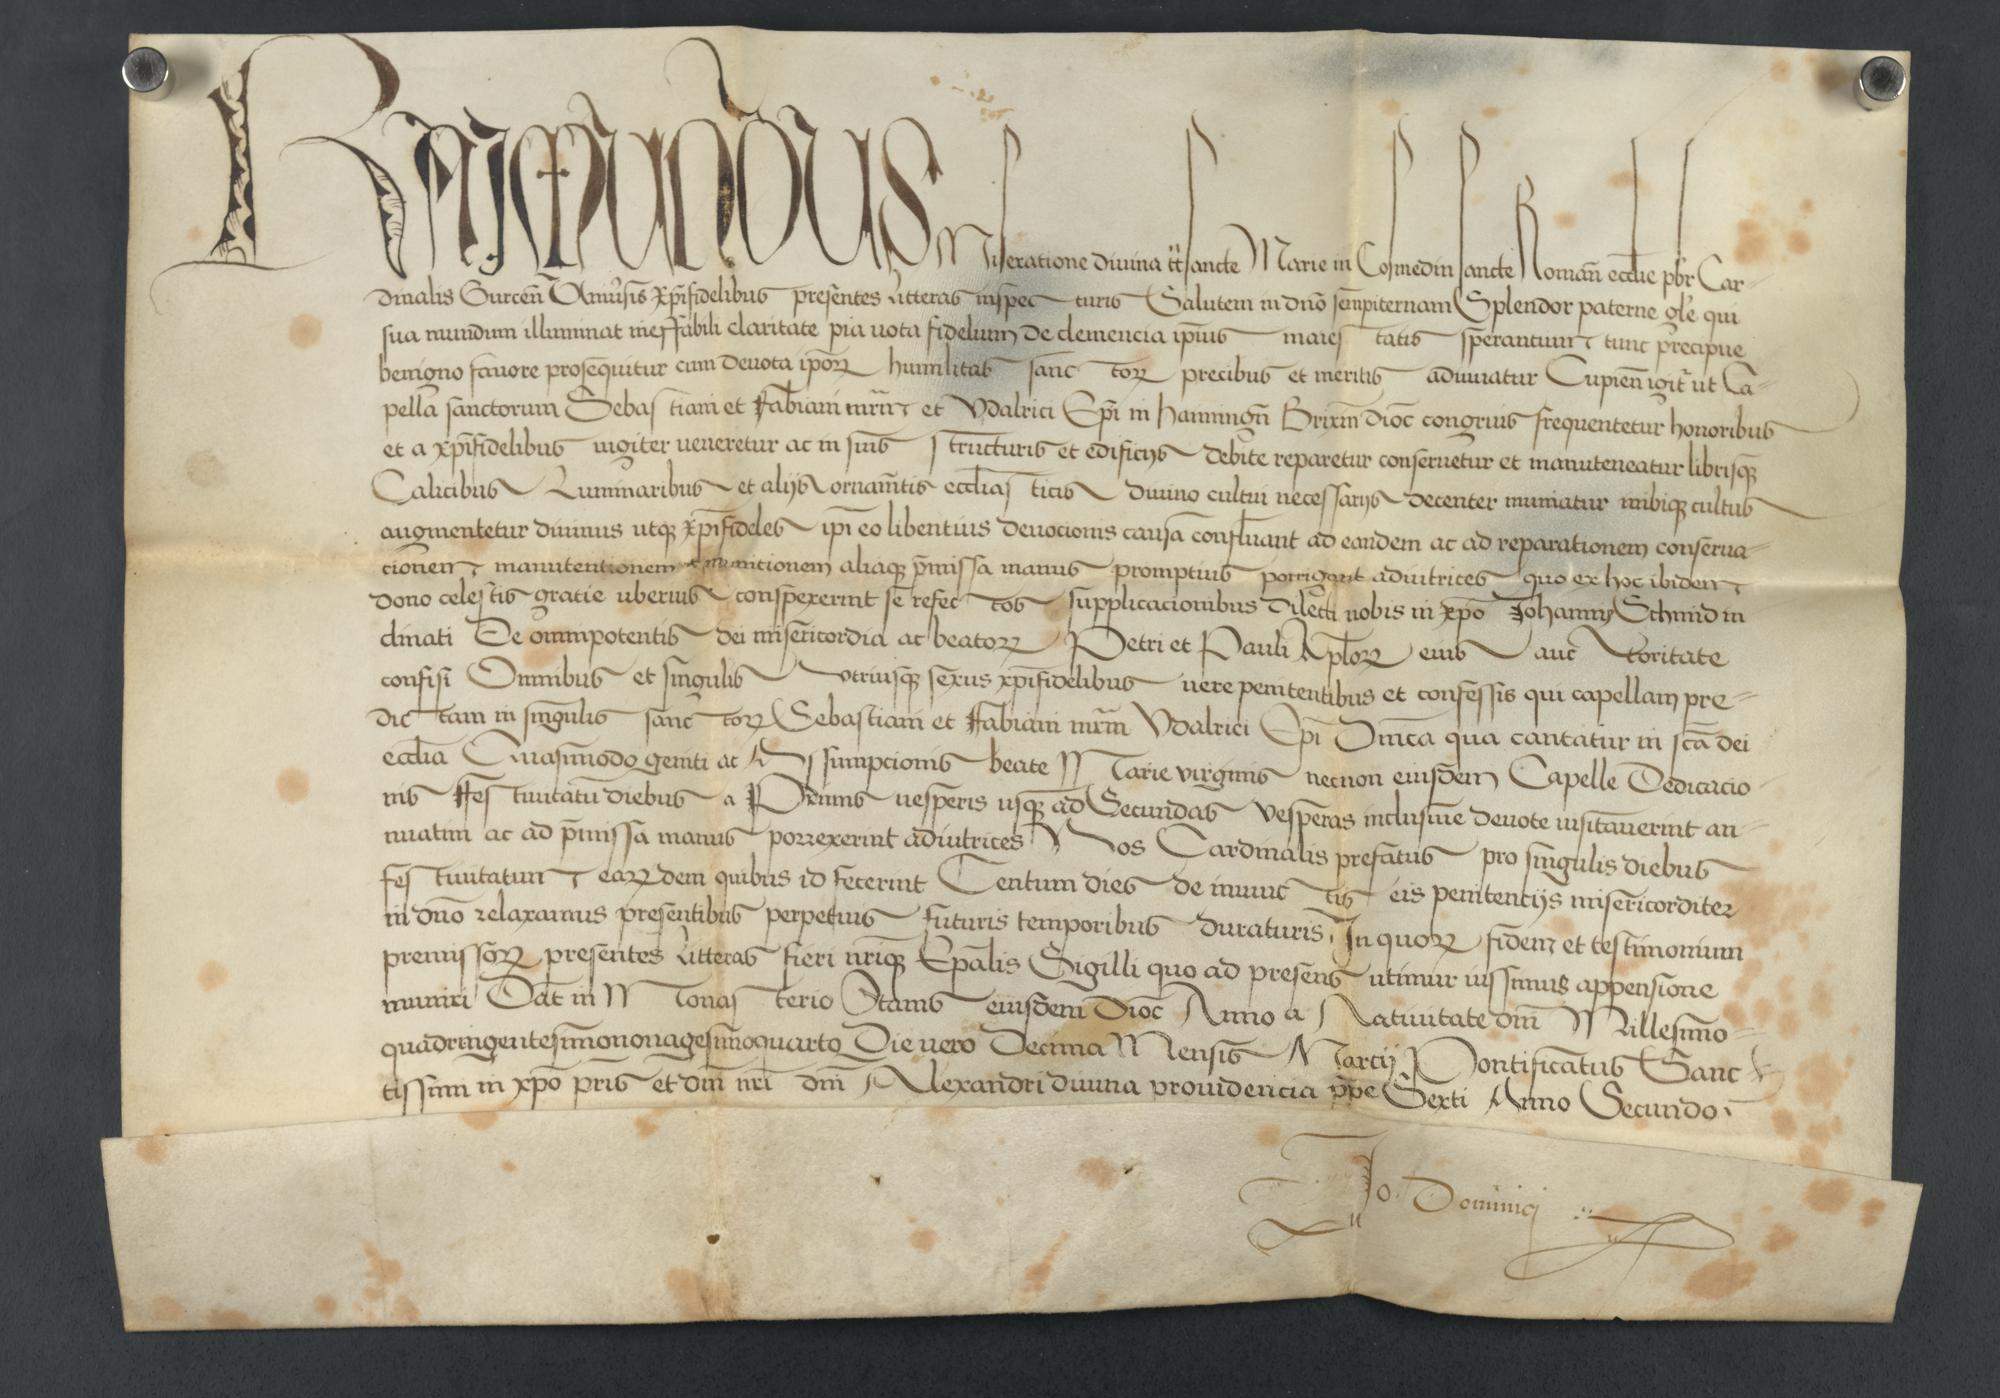 Raymundus Miseratione divina tt sancte Marie in Cosmedin sancte Roman eccl̄ie pbr Car-
dinalis Gurceñ Univ̄sis xp̄ifidelibus presentes litteras inspec turis Salutem in dño sempiternam Splendor paterne gl̄e qui
sua mundum illuminat ineffabili claritate pia vota fidelium de clemencia ip̄ius maies tatis sperantium tunc precipue
benigno favore prosequitur cum devota ip̄oꝝ humilitas sanc toꝝ precibus et meritis adiuvatur Cupien̄ igit̄ ut Ca-
pella sanctorum Sebas tiani et Fabiani mrm̄ et Vdalrici Ep̄i in Hanningn̄ Brixiñ dioc̄ congruis frequentetur honoribus
et a xp̄ifidelibus iugiter veneretur ac in suis s tructuris et edificijs debite reparetur conservetur et manuteneatur librisqꝫ
Calicibus Luminaribus et alijs ornam̄tis eccl̄ias ticis divino cultui necessarijs decenter muniatur inibiqꝫ cultus
augmentetur divinus utqꝫ xp̄ifideles ip̄i eo libentius devocionis causa confluant ad eandem ac ad reparationem conserva-
cionem manutentionem et munitionem aliaqꝫ p̄missa manus promptius porrigant adiutrices quo ex hoc ibidem
dono celestis gratie uberius conspexerint se refec tos supplicacionibus dilecti nobis in xp̄o Johannis Schmid in
clinati De omnipotentis dei misericordia ac beatoꝝ Petri et Pauli Ap̄loꝝ eius auc toritate
confisi Omnibus et singulis utriusqꝫ sexus xp̄ifidelibus vere penitentibus et confessis qui capellam pre-
dic tam in singulis sanc toꝝ Sebastiani et Fabiani mr̄m Vdalrici Ep̄i Dñica qua cantatur in sc̄a dei
eccl̄ia Quasimodo geniti ac Assumpcionis beate Marie virginis necnon eiusdem Capelle Dedicacio-
nis Fes tivitatū diebus a Primis vesperis usqꝫ ad Secundas vesperas inclusive devote visitaverint an-
nuatim ac ad p̄missa manus porrexerint adiutrices Nos Cardinalis prefatus pro singulis diebus
fes tivitatum earundem quibus id fecerint Centum dies de iniunc tis eis penitencijs misericorditer
in dño relaxamus presentibus perpetuis futuris temporibus duraturis In quoꝝ fidem et testimonium
premissoꝝ presentes litteras fieri nr̄iqꝫ Ep̄alis Sigilli quo ad presens utimur iussimus appensione
muniri Dat̄ in Monas terio Stams eiusdem Dioc̄ Anno a Nativitate dñi Millesimo-
quadringentesimononagesimoquarto Die vero Decima Mensis Marcij Pontificatus Sanc
tissimi in xp̄o p̄ris et dñi nr̄i dñi Alexandri divina providencia p̄pe Sexti Anno Secundo
Jo. Dominici